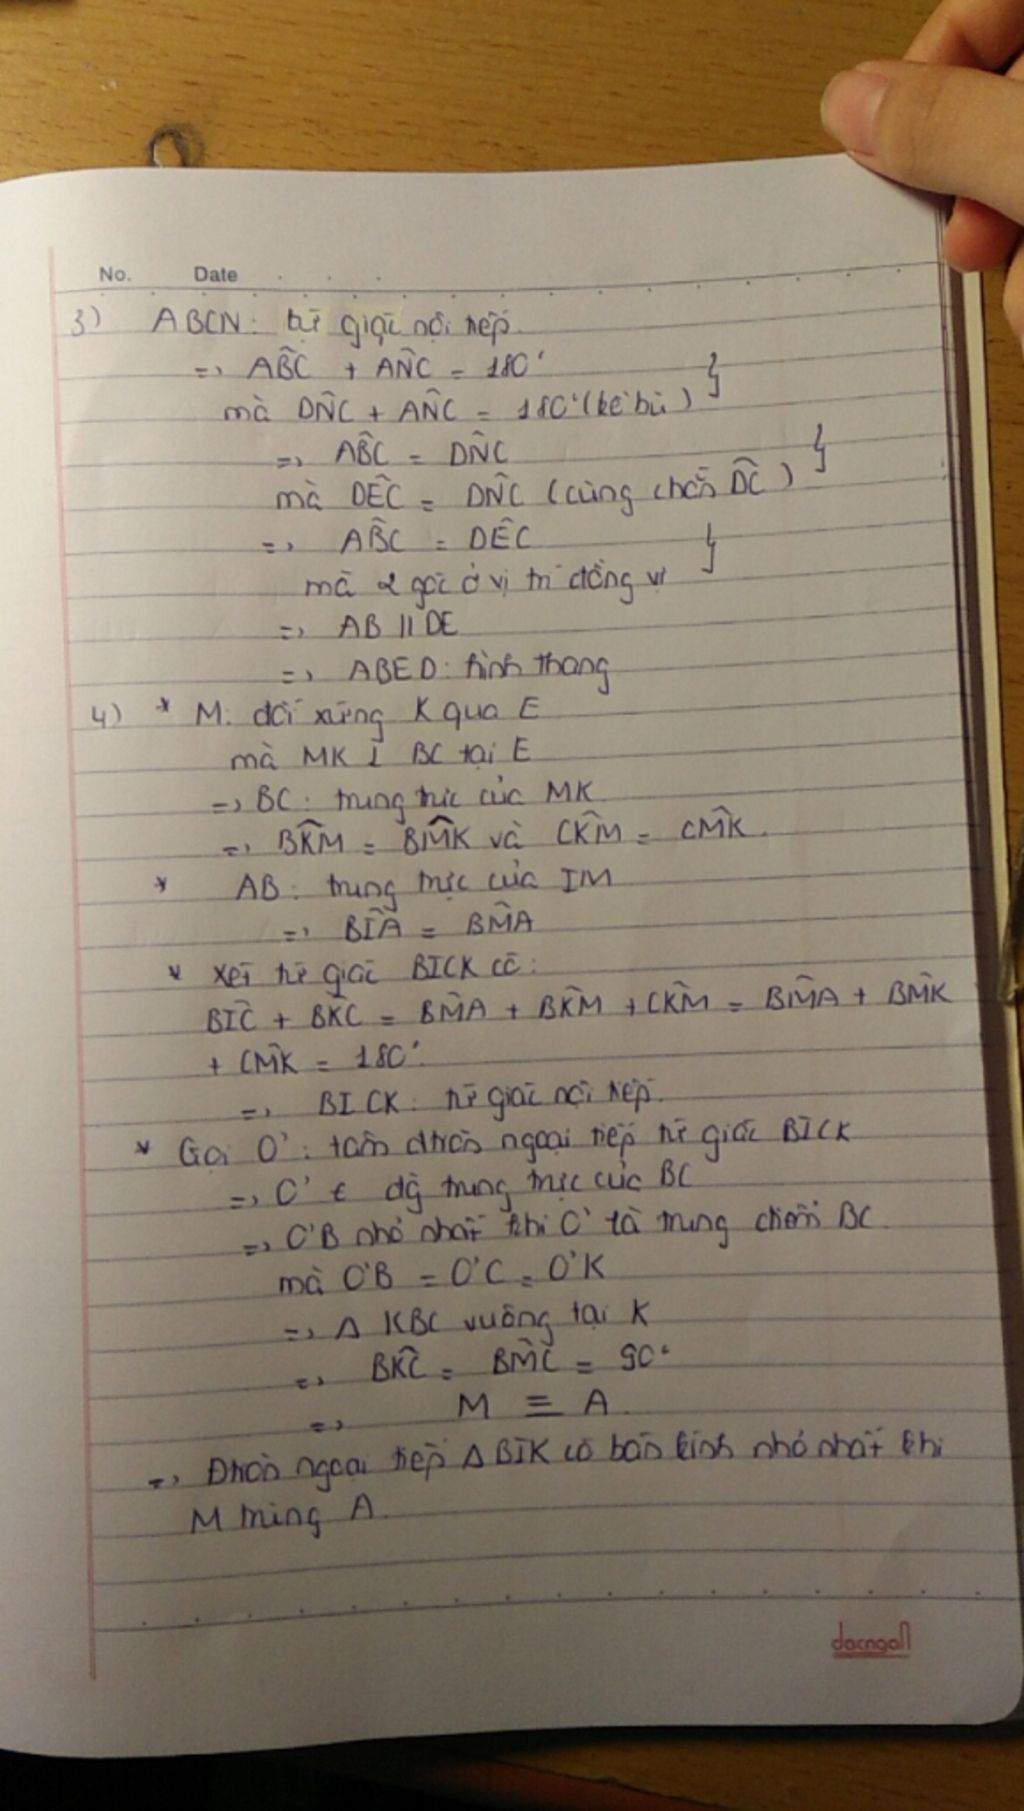 No. Date
3) ABCN: tứ giác nội tiếp.
=> AB̂C + AN̂C = 180°
mà DN̂C + AN̂C = 180° (kề bù) }
=> AB̂C = DN̂C
mà DÊC = DN̂C (cùng chắn DC) }
=> AB̂C = DÊC
mà 2 góc ở vị trí đồng vị }
=> AB // DE
=> ABED: hình thang
4) * M: đối xứng K qua E
mà MK ⊥ BC tại E
=> BC: trung trực của MK
=> BK̂M = BM̂K và CK̂M = CM̂K.
* AB: trung trực của IM
=> BÎA = BM̂A
* Xét tứ giác BICK có:
BÎC + BK̂C = BM̂A + BK̂M + CK̂M = BM̂A + BM̂K
+ CM̂K = 180°.
=> BICK: tứ giác nội tiếp.
* Gọi O': tâm đtròn ngoại tiếp tứ giác BICK
=> O' ∈ đg trung trực của BC
=> O'B nhỏ nhất khi O' là trung điểm BC.
mà O'B = O'C = O'K
=> Δ KBC vuông tại K
=> BK̂C = BM̂C = 90°
=> M ≡ A.
=> Đtròn ngoại tiếp Δ BIK có bán kính nhỏ nhất khi
M trùng A.
dacngan